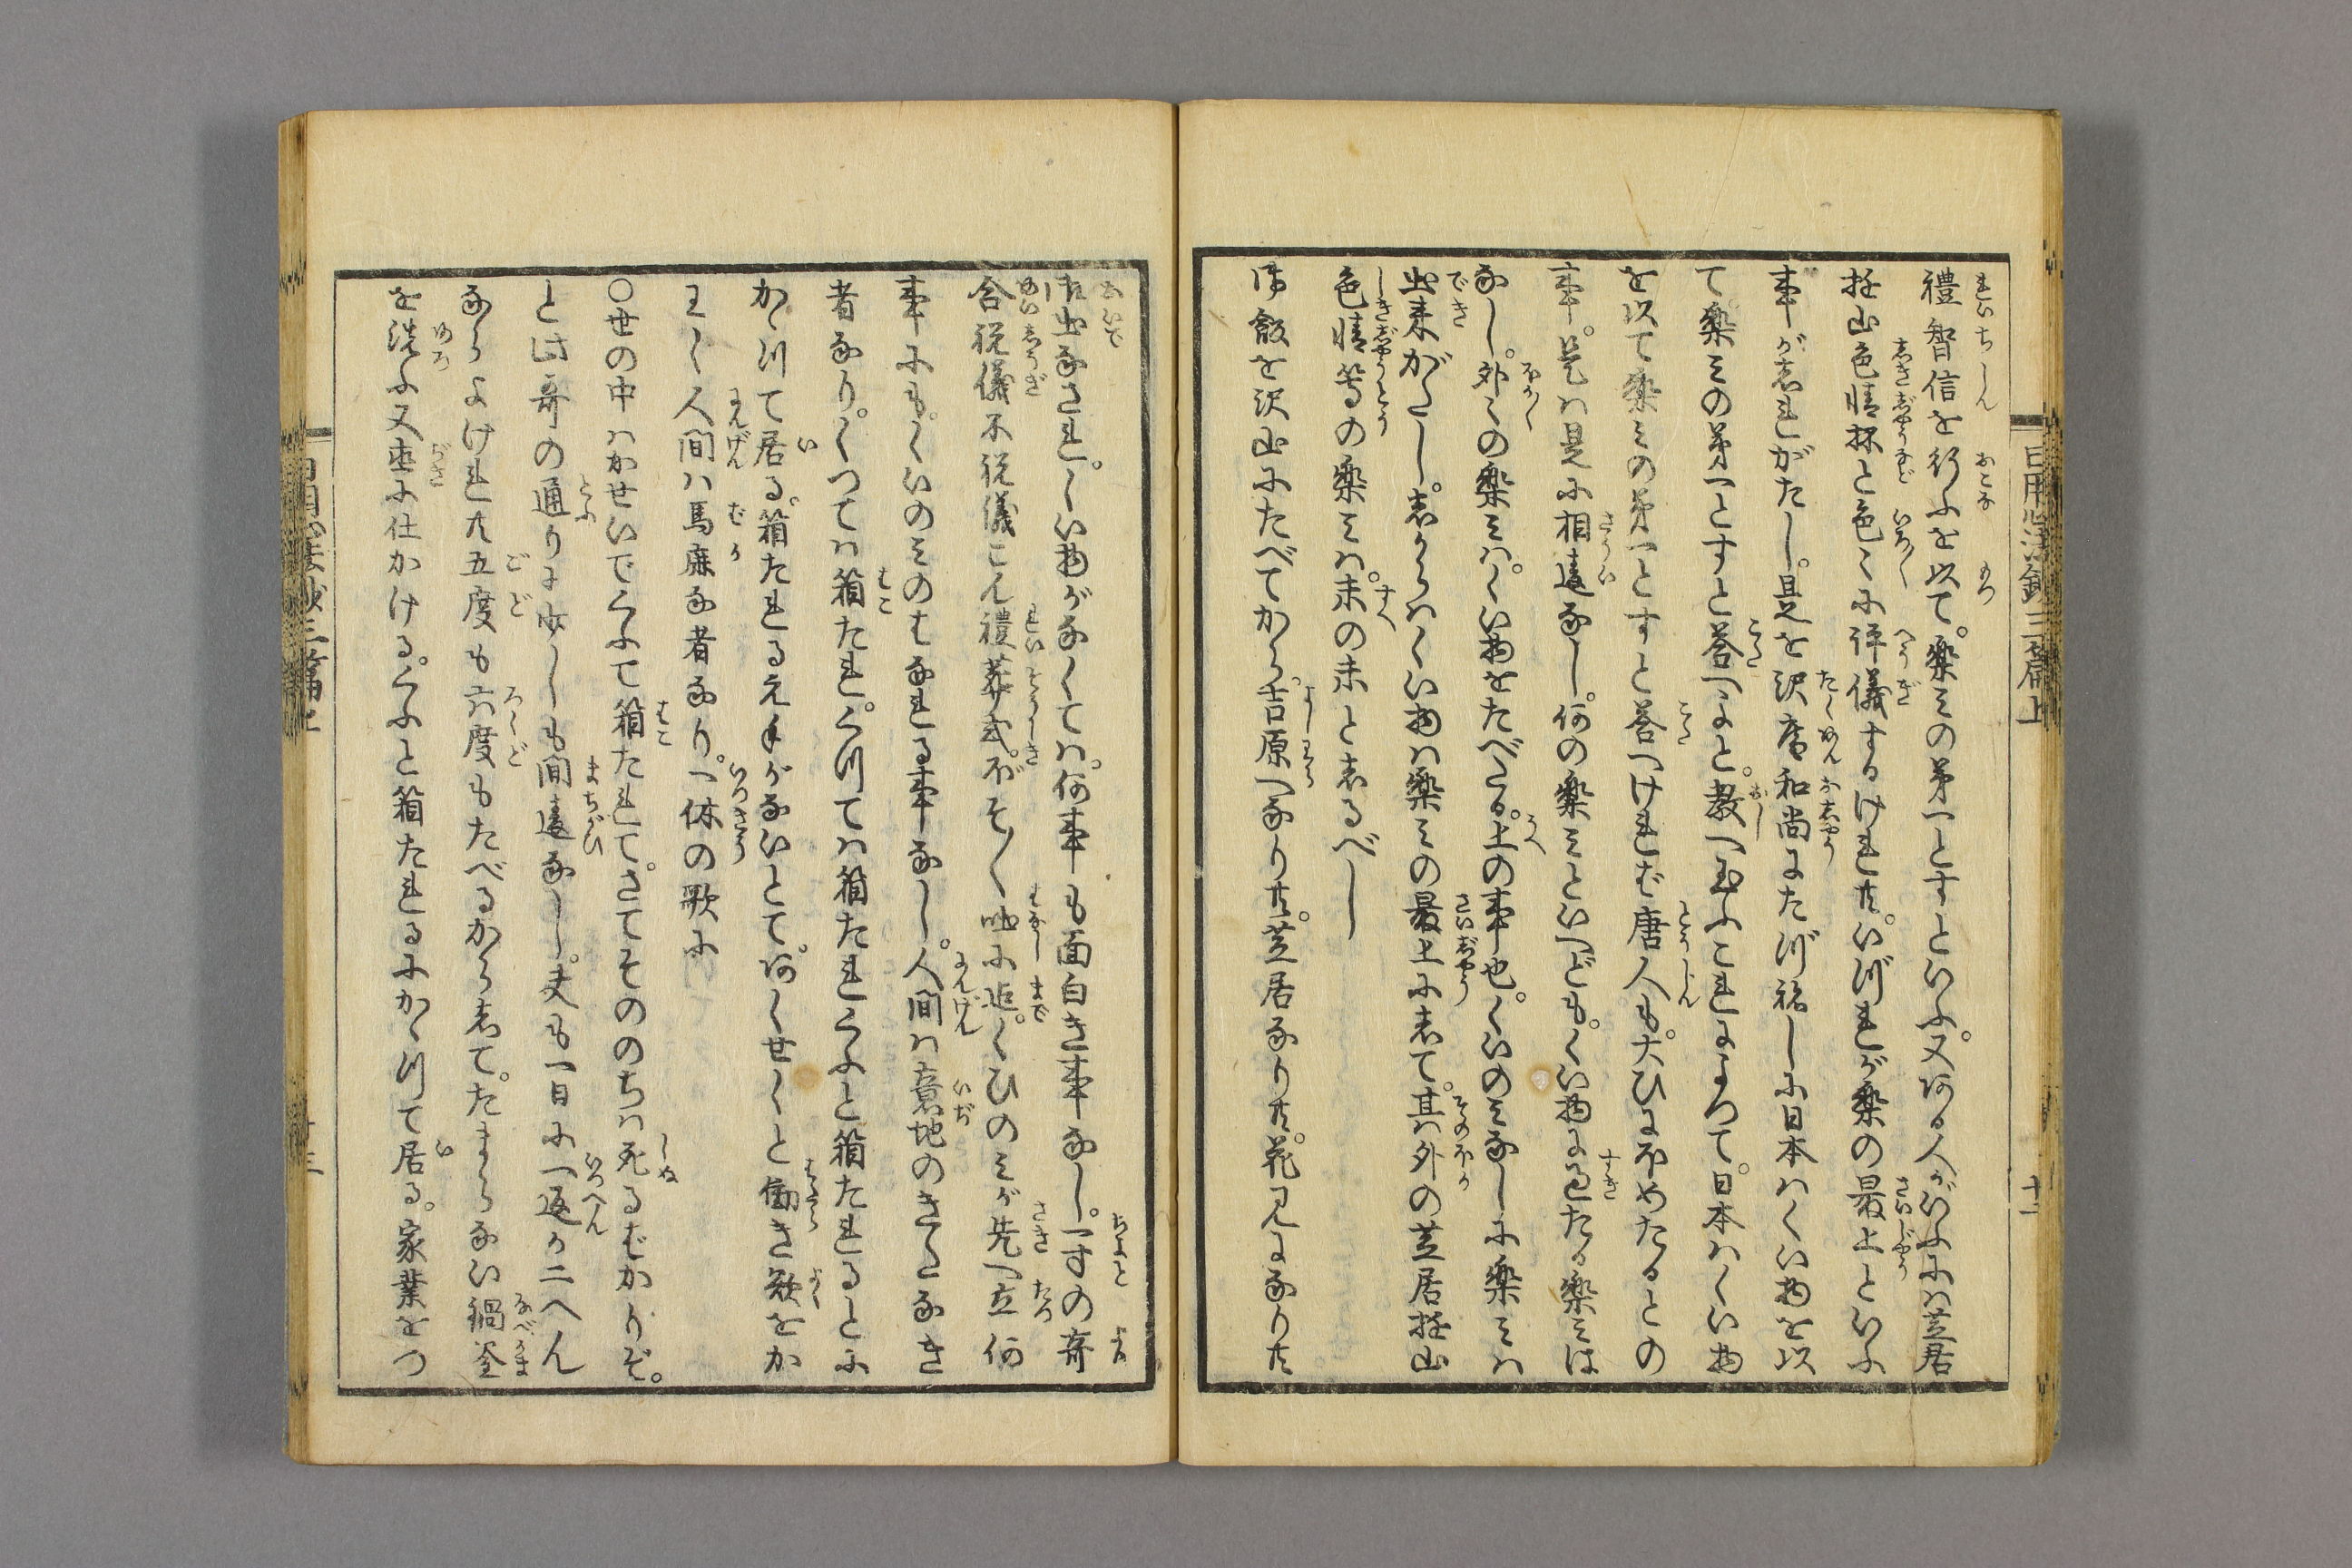 禮智信を行ふを以て。樂ミの第一とすといふ。又或る人がいふにハ芝居
遊山色情抔と色〻に評儀するけれ共。いづれが樂の最上といふ
事がしれがたし。是を沢庵和尚にたづねしに日本ハくい物を以
て樂ミの第一とすと答へよと。教へ玉ふこれによつて。日本ハくい物
を以て樂ミの第一とすと答へけれバ唐人も。大ひにほめたるとの
事。是ハ是に相違なし。何の樂ミといへども。くい物にまさたる樂ミは
なし。外〻の樂ミハ。くい物をたべたる。上の事也。くいのミなしに樂ミハ
出来がたし。しからハくい物ハ樂ミの最上にして。其外の芝居遊山
色情等の樂ミハ。末の末としるべし
御飯を沢山にたべてから。吉原へなり共。芝居なり共。花見になり共
御出なされ。くい物がなくてハ。何事も面白き事なし。一寸の寄
合祝儀不祝儀こん禮葬式。ぼそ〳〵咄に迄。くひのミが先へ立何
事にも。くいのミのはなれる事なし。人間ハ意地のきたなき
者なり。くつてハ箱たれ。くつてハ箱たれくふと箱たれるとに
かゝつて居る。箱たれるえ手がないとて。あくせくと働き欲をか
わく人間ハ馬鹿な者なり。一休の歌に
〇世の中ハかせいでくふて箱たれて。さてそののちハ死るばかりぞ。
と此哥の通りに少しも間違なし。夫も一日に一返か二へん
ならよけれ共五度も六度もたべるからして。たまらない鍋釜
を洗ふ又直に仕かける。くふと箱たれるにかゝつて居る。家業をつ
日用心法鈔三篇上
十二
日用心法鈔三篇上
十三